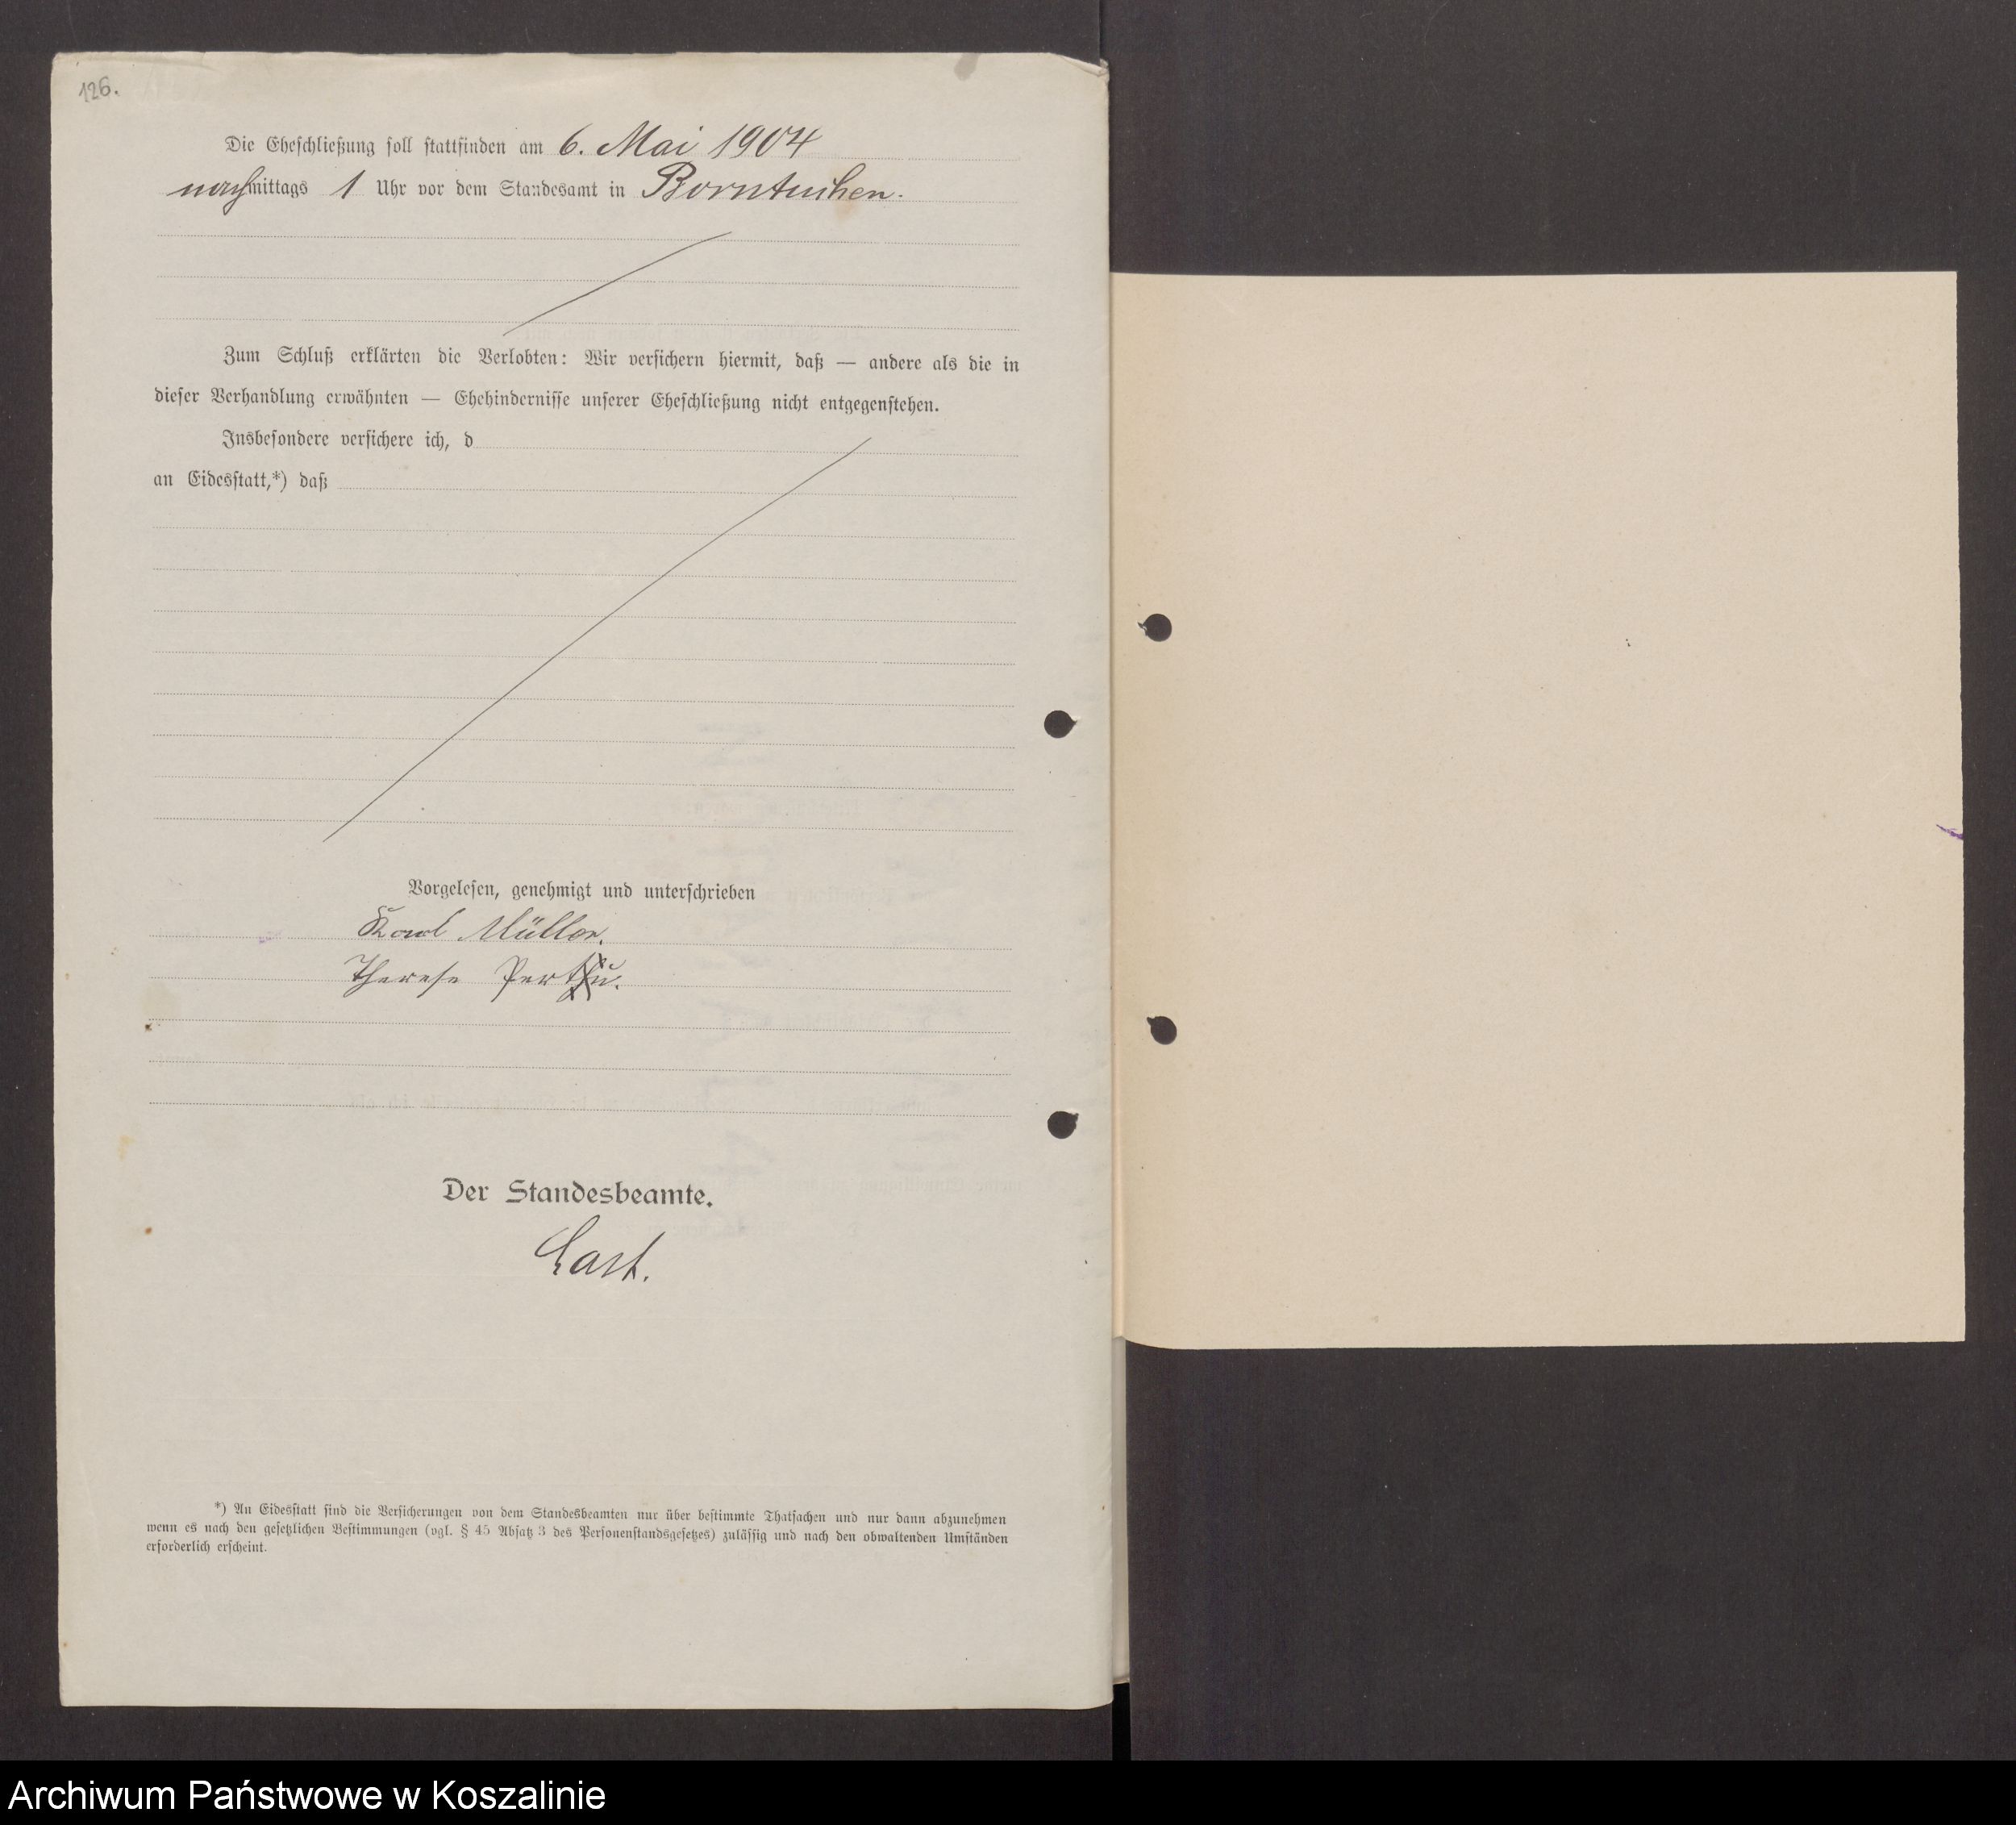 126.
Die Eheschließung soll stattfinden am 6. Mai 1904
nachmittags 1 Uhr vor dem Standesamt in Borntuchen.
Zum Schluß erklärten die Verlobten: Wir versichern hiermit, daß — andere als die in
dieser Verhandlung erwähnten — Ehehindernisse unserer Eheschließung nicht entgegenstehen.
Insbesondere versichere ich, d
an Eidesstatt,*) daß
Vorgelesen, genehmigt und unterschrieben
Karl Müller.
Therese
Der Standesbeamte.
*) An Eidesstatt sind die Versicherungen von dem Standesbeamten nur über bestimmte Thatsachen und nur dann abzunehmen
wenn es nach den gesetzlichen Bestimmungen (vgl. § 45 Absatz 3 des Personenstandsgesetzes) zulässig und nach den obwaltenden Umständen
erforderlich erscheint.
Archiwum Państwowe w Koszalinie